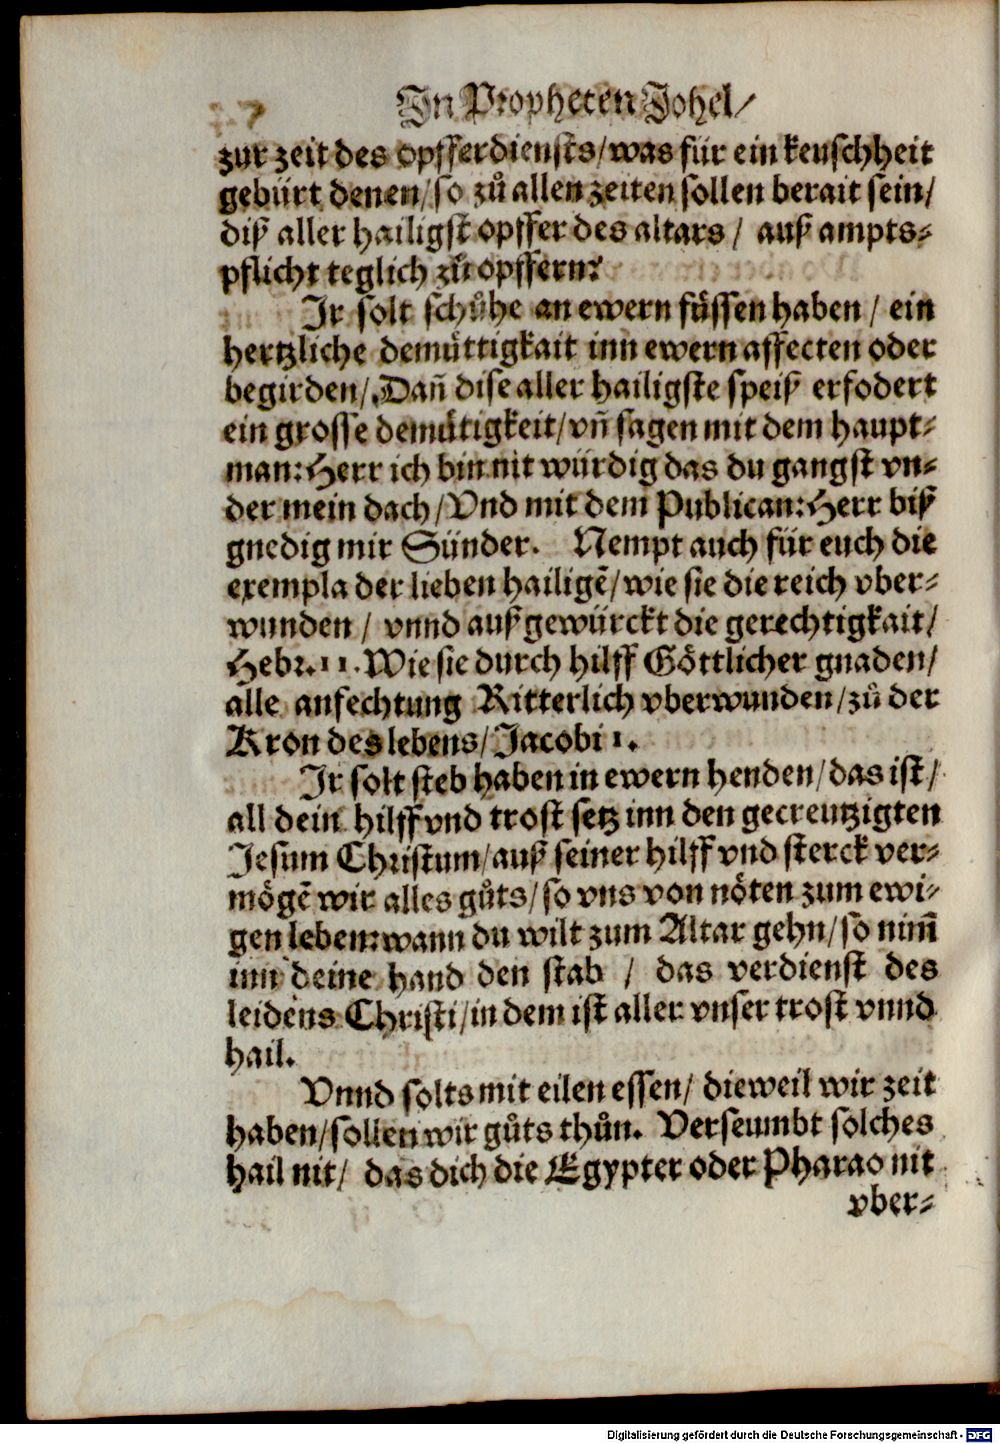 In Propheten Johel/
zur zeit des opfferdiensts/was für ein keuschheit
gebürt denen/so zů allen zeiten sollen berait sein/
diß aller hailigst opffer des altars/ auß ampts⸗
pflicht teglich zů opffern?
Ir solt schůhe an ewern füssen haben/ ein
hertzliche demüttigkait inn ewern affecten oder
begirden/. Dañ dise aller hailigste speiß erfodert
ein grosse demütigkeit/vñ sagen mit dem haupt⸗
man: Herr ich bin nit würdig das du gangst vn⸗
der mein dach/Vnd mit dem Publican: Herr biß
gnedig mir Sünder. Nempt auch für euch die
exempla der lieben hailigẽ/wie sie die reich vber⸗
wunden/ vnnd außgewürckt die gerechtigkait/
Hebr. 11. Wie sie durch hilff Göttlicher gnaden/
alle anfechtung Ritterlich vberwunden/zů der
Kron des lebens/Jacobi 1.
Ir solt steb haben in ewern henden/das ist/
all dein hilff vnd trost setz inn den gecreutzigten
Jesum Christum/auß seiner hilff vnd sterck ver⸗
mögẽ wir alles gůts/so vns von nöten zum ewi⸗
gen leben: wann du wilt zum Altar gehn/so nim̃
inn deine hand den stab/ das verdienst des
leidens Christi/in dem ist aller vnser trost vnnd
hail.
Vnnd solts mit eilen essen/ dieweil wir zeit
haben/sollen wir gůts thůn. Verseumbt solches
hail nit/ das dich die Egypter oder Pharao nit
vber⸗
Digitalisierung gefördert durch die Deutsche Forschungsgemeinschaft - DFG